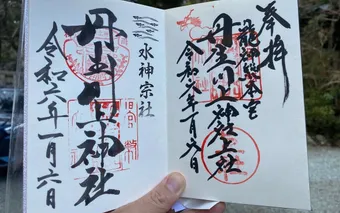 奉拝
龍神総本宮
丹生川上神社上社
令和六年一月六日
水神宗社
丹生川上神社
令和六年一月六日